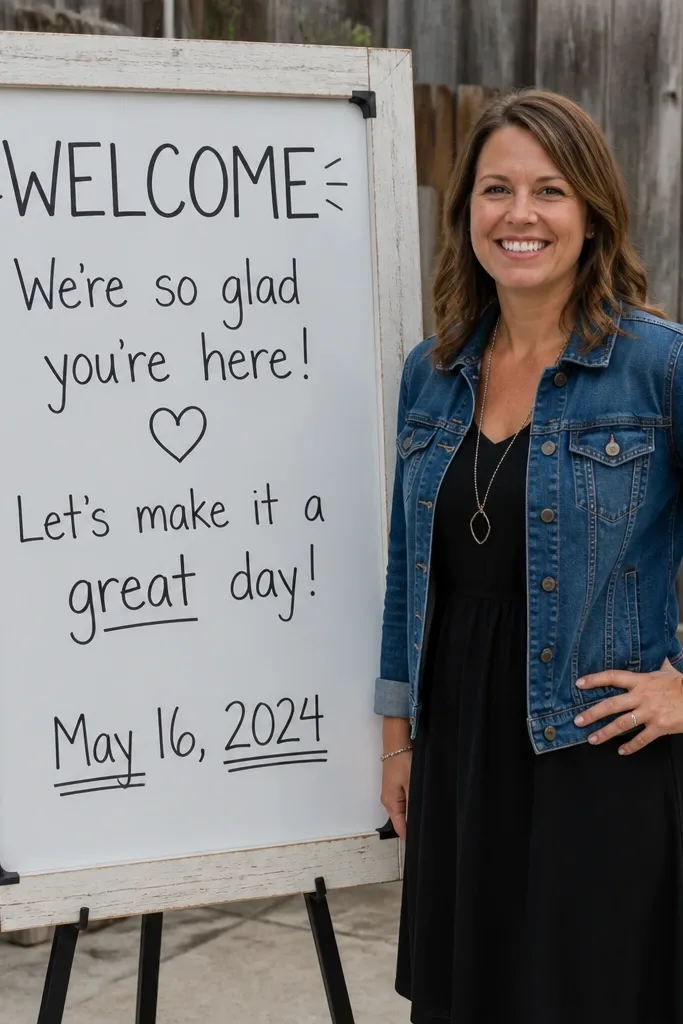 WELCOME
We're so glad
you're here!
Let's make it a
great day!
May 16, 2024